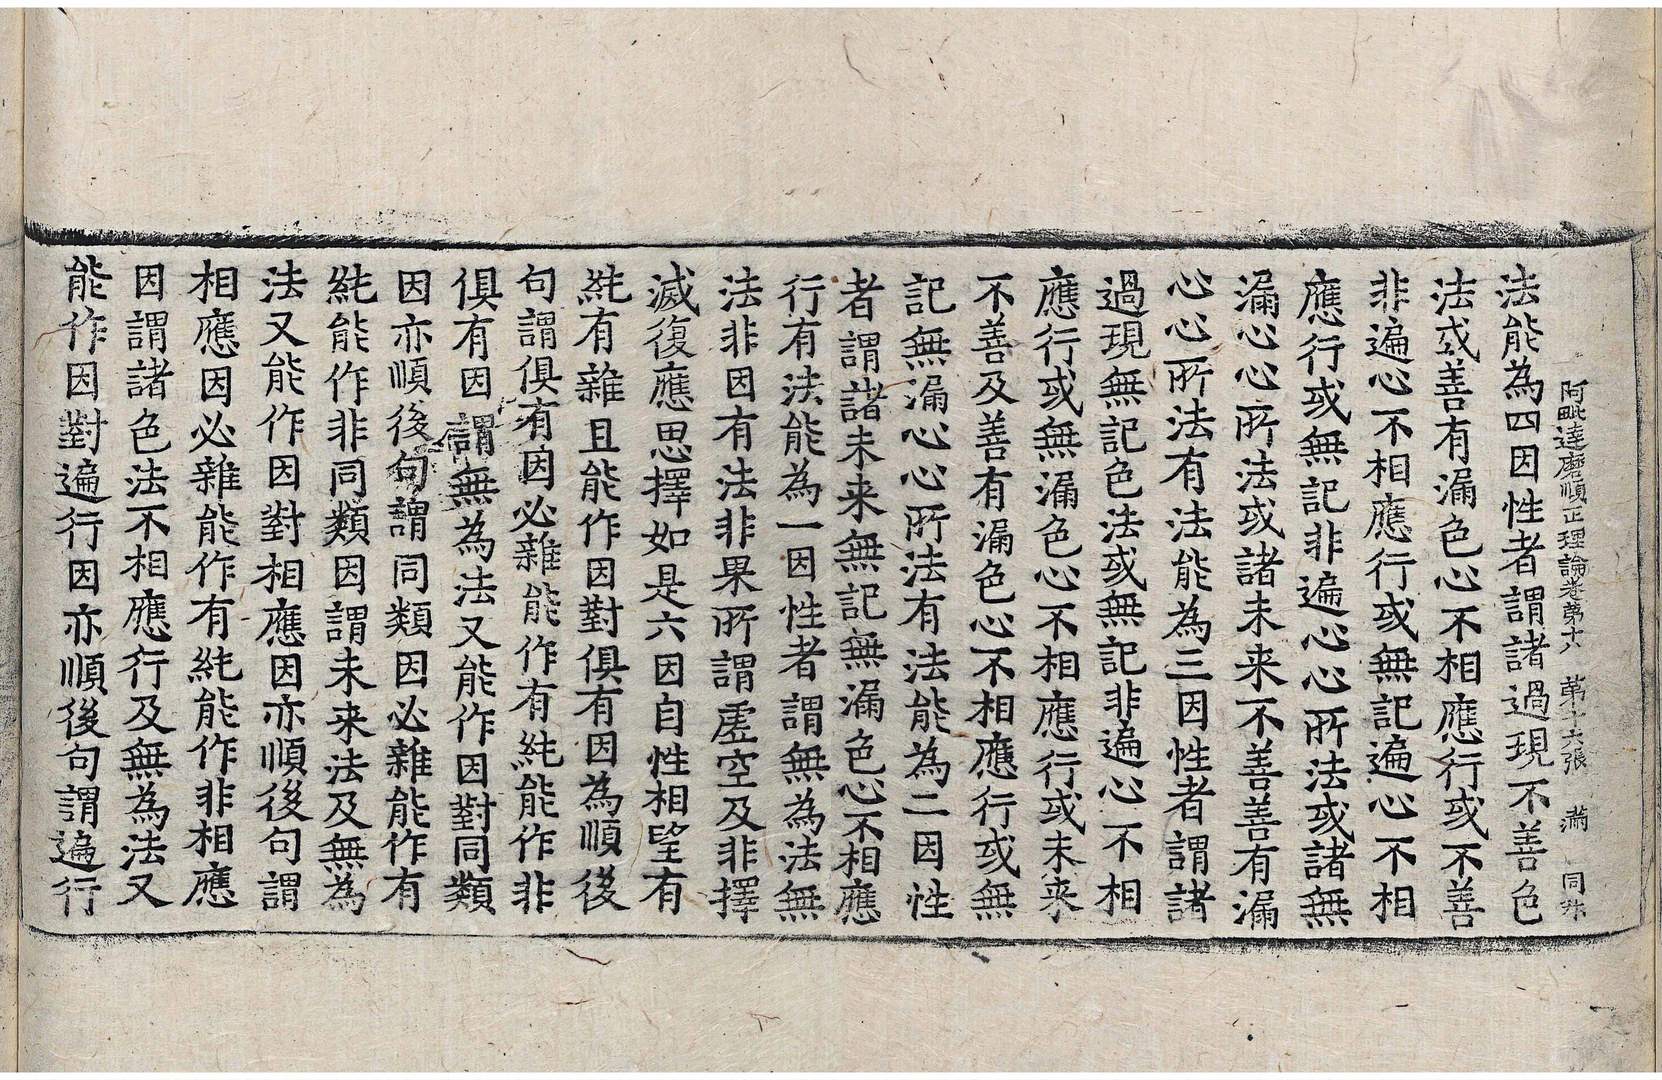 阿毗達磨順正理論卷第十六　第十六張　滿　同殊
法能為四因性者謂諸過現不善色
法或善有漏色心不相應行或不善
非遍心不相應行或無記遍心不相
應行或無記非遍心心所法或諸無
漏心心所法或諸未来不善善有漏
心心所法有法能為三因性者謂諸
過現無記色法或無記非遍心不相
應行或無漏色心不相應行或未来
不善及善有漏色心不相應行或無
記無漏心心所法有法能為二因性
者謂諸未来無記無漏色心不相應
行有法能為一因性者謂無為法無
法非因有法非果所謂虛空及非擇
滅復應思擇如是六因自性相望有
純有雜且能作因對俱有因為順後
句謂俱有因必雜能作有純能作非
俱有因謂無為法又能作因對同類
因亦順後句謂同類因必雜能作有
純能作非同類因謂未来法及無為
法又能作因對相應因亦順後句謂
相應因必雜能作有純能作非相應
因謂諸色法不相應行及無為法又
能作因對遍行因亦順後句謂遍行